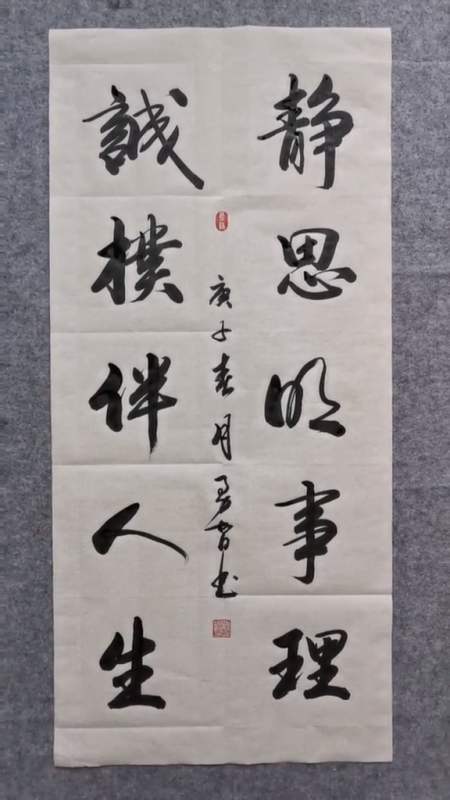 静思明事理
誠樸伴人生
庚子春月 書